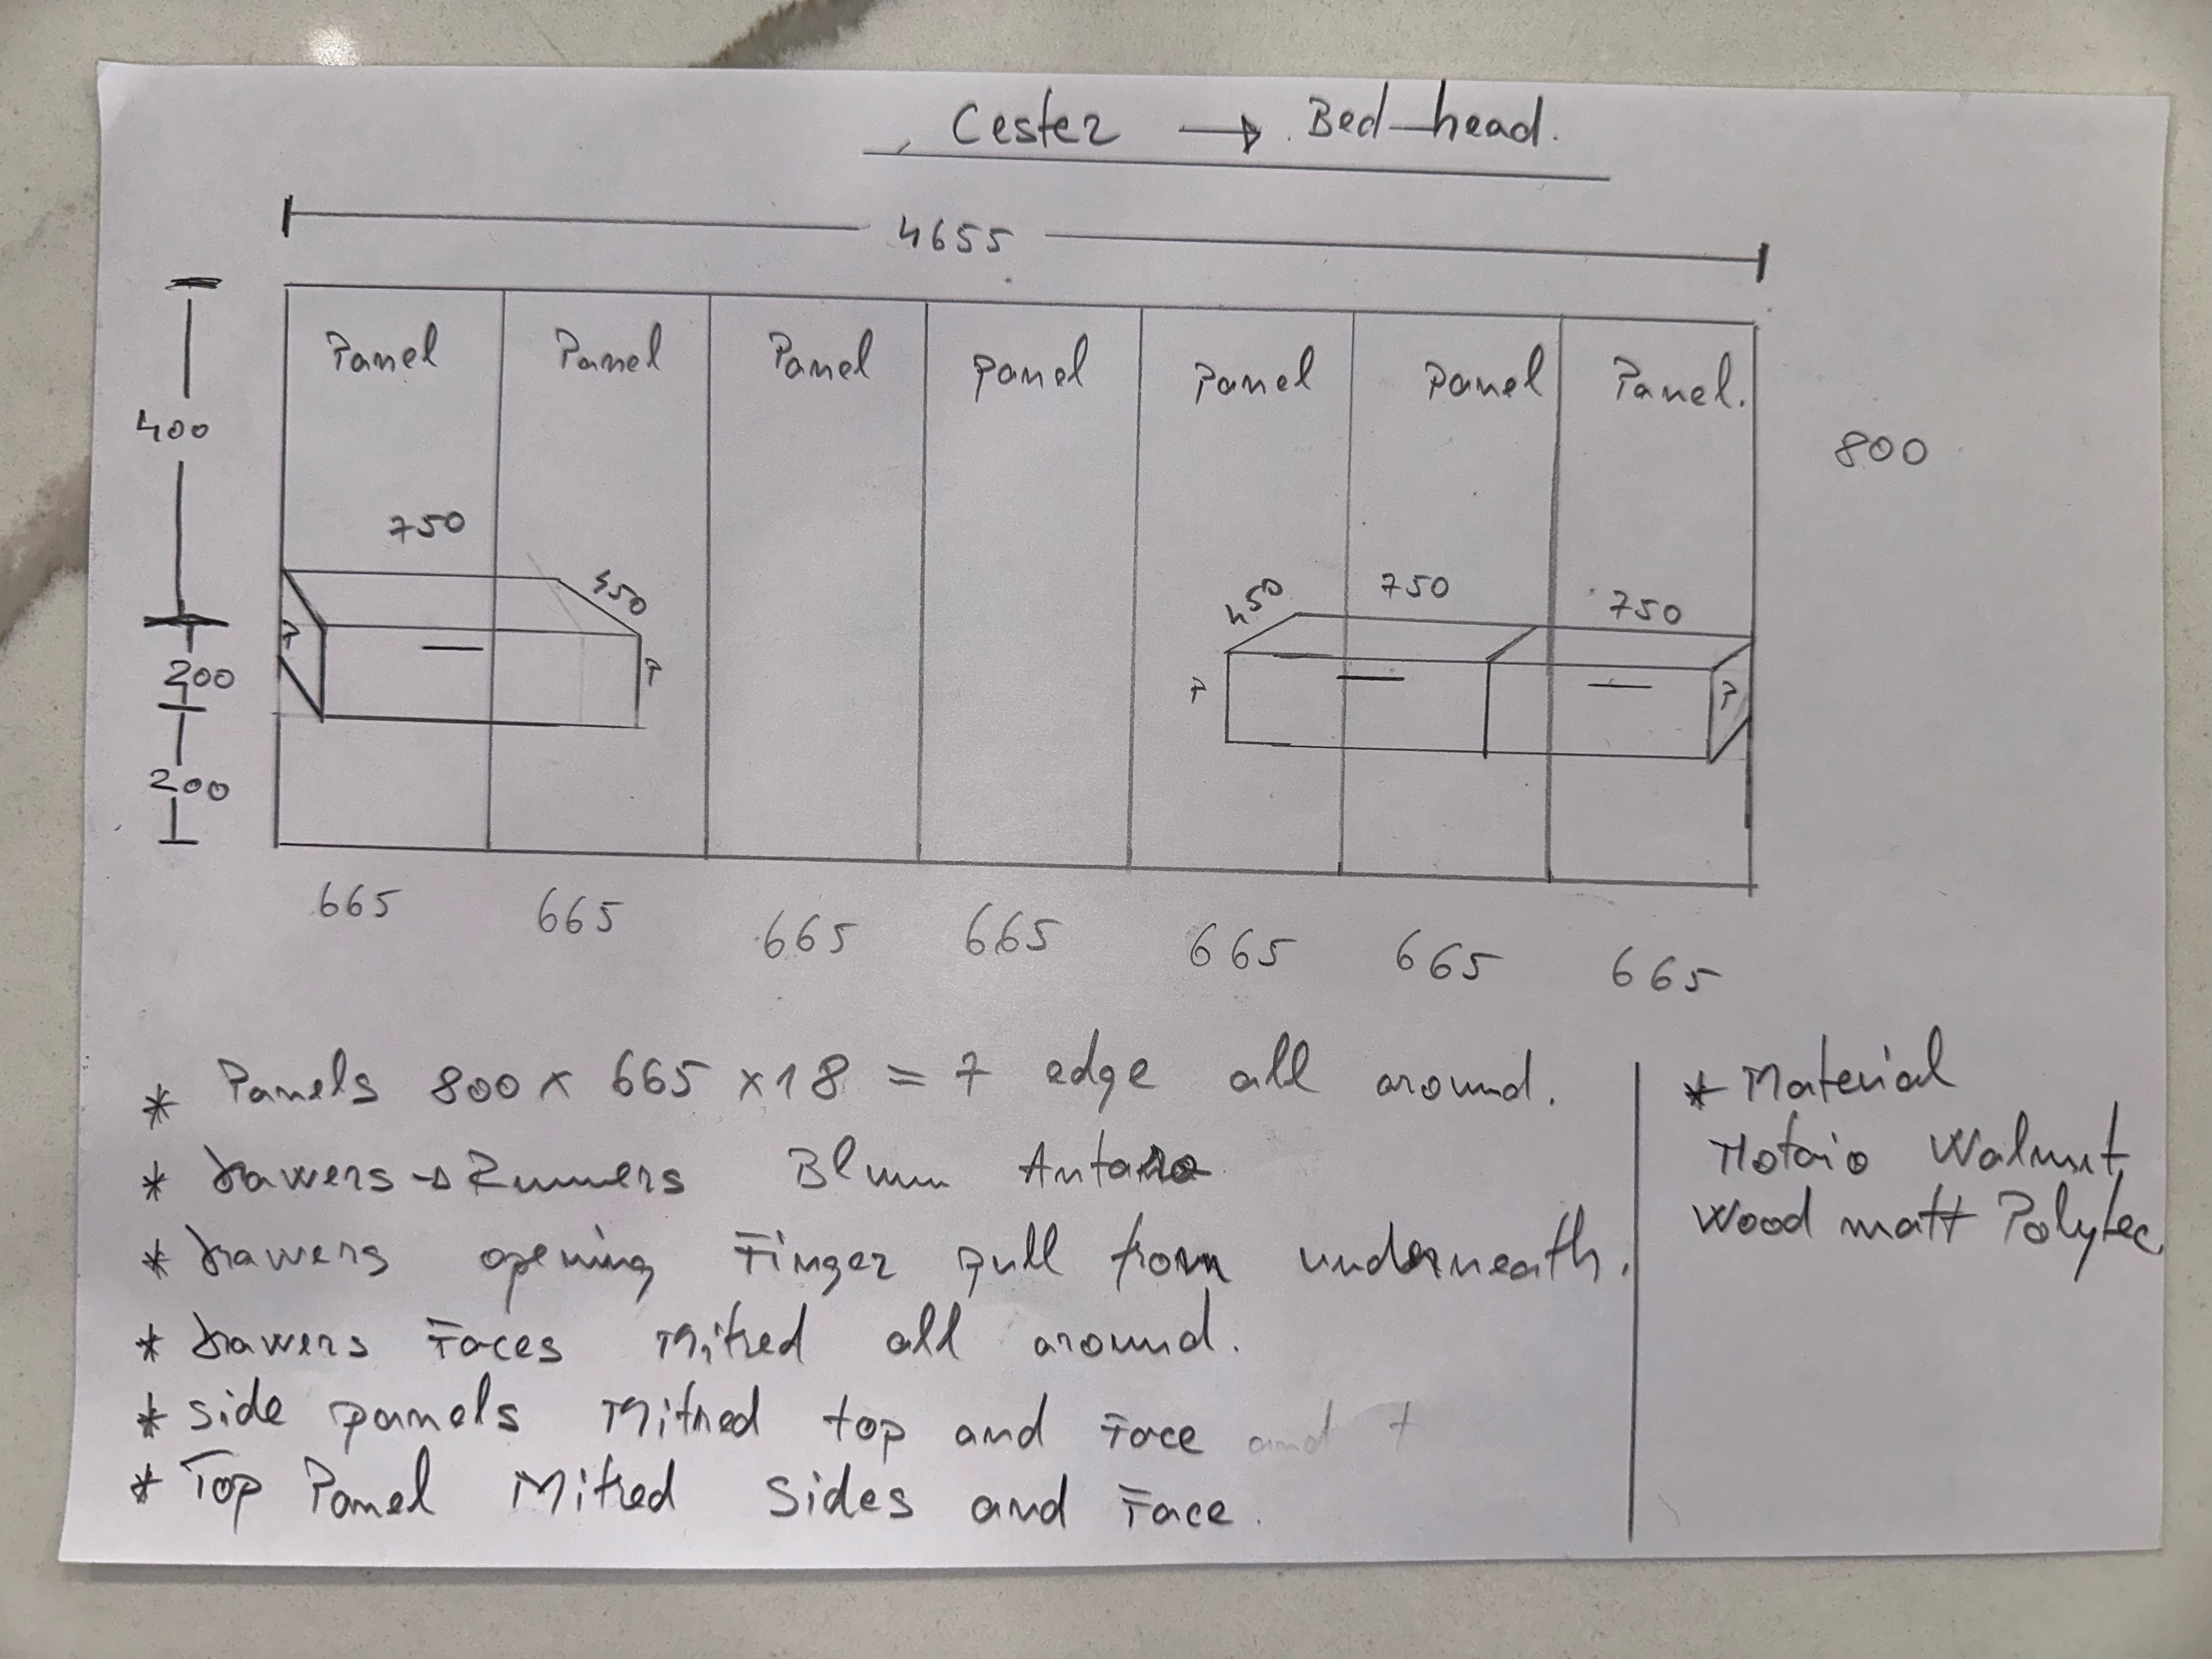 Cester → Bed-head.
4655
Panel Panel Panel Panel Panel Panel Panel.
400
800
750
450
450 750 750
P P P P
200
200
665 665 665 665 665 665 665
* Panels 800 x 665 x 18 = 7 edge all around.
* Drawers → Runners Blum Antaro
* Drawers opening Finger pull from underneath.
* Drawers Faces Mitred all around.
* Side panels Mitred top and Face and t
* Top Panel Mitred Sides and Face.
* Material
Notaio Walnut
Wood matt Polytec